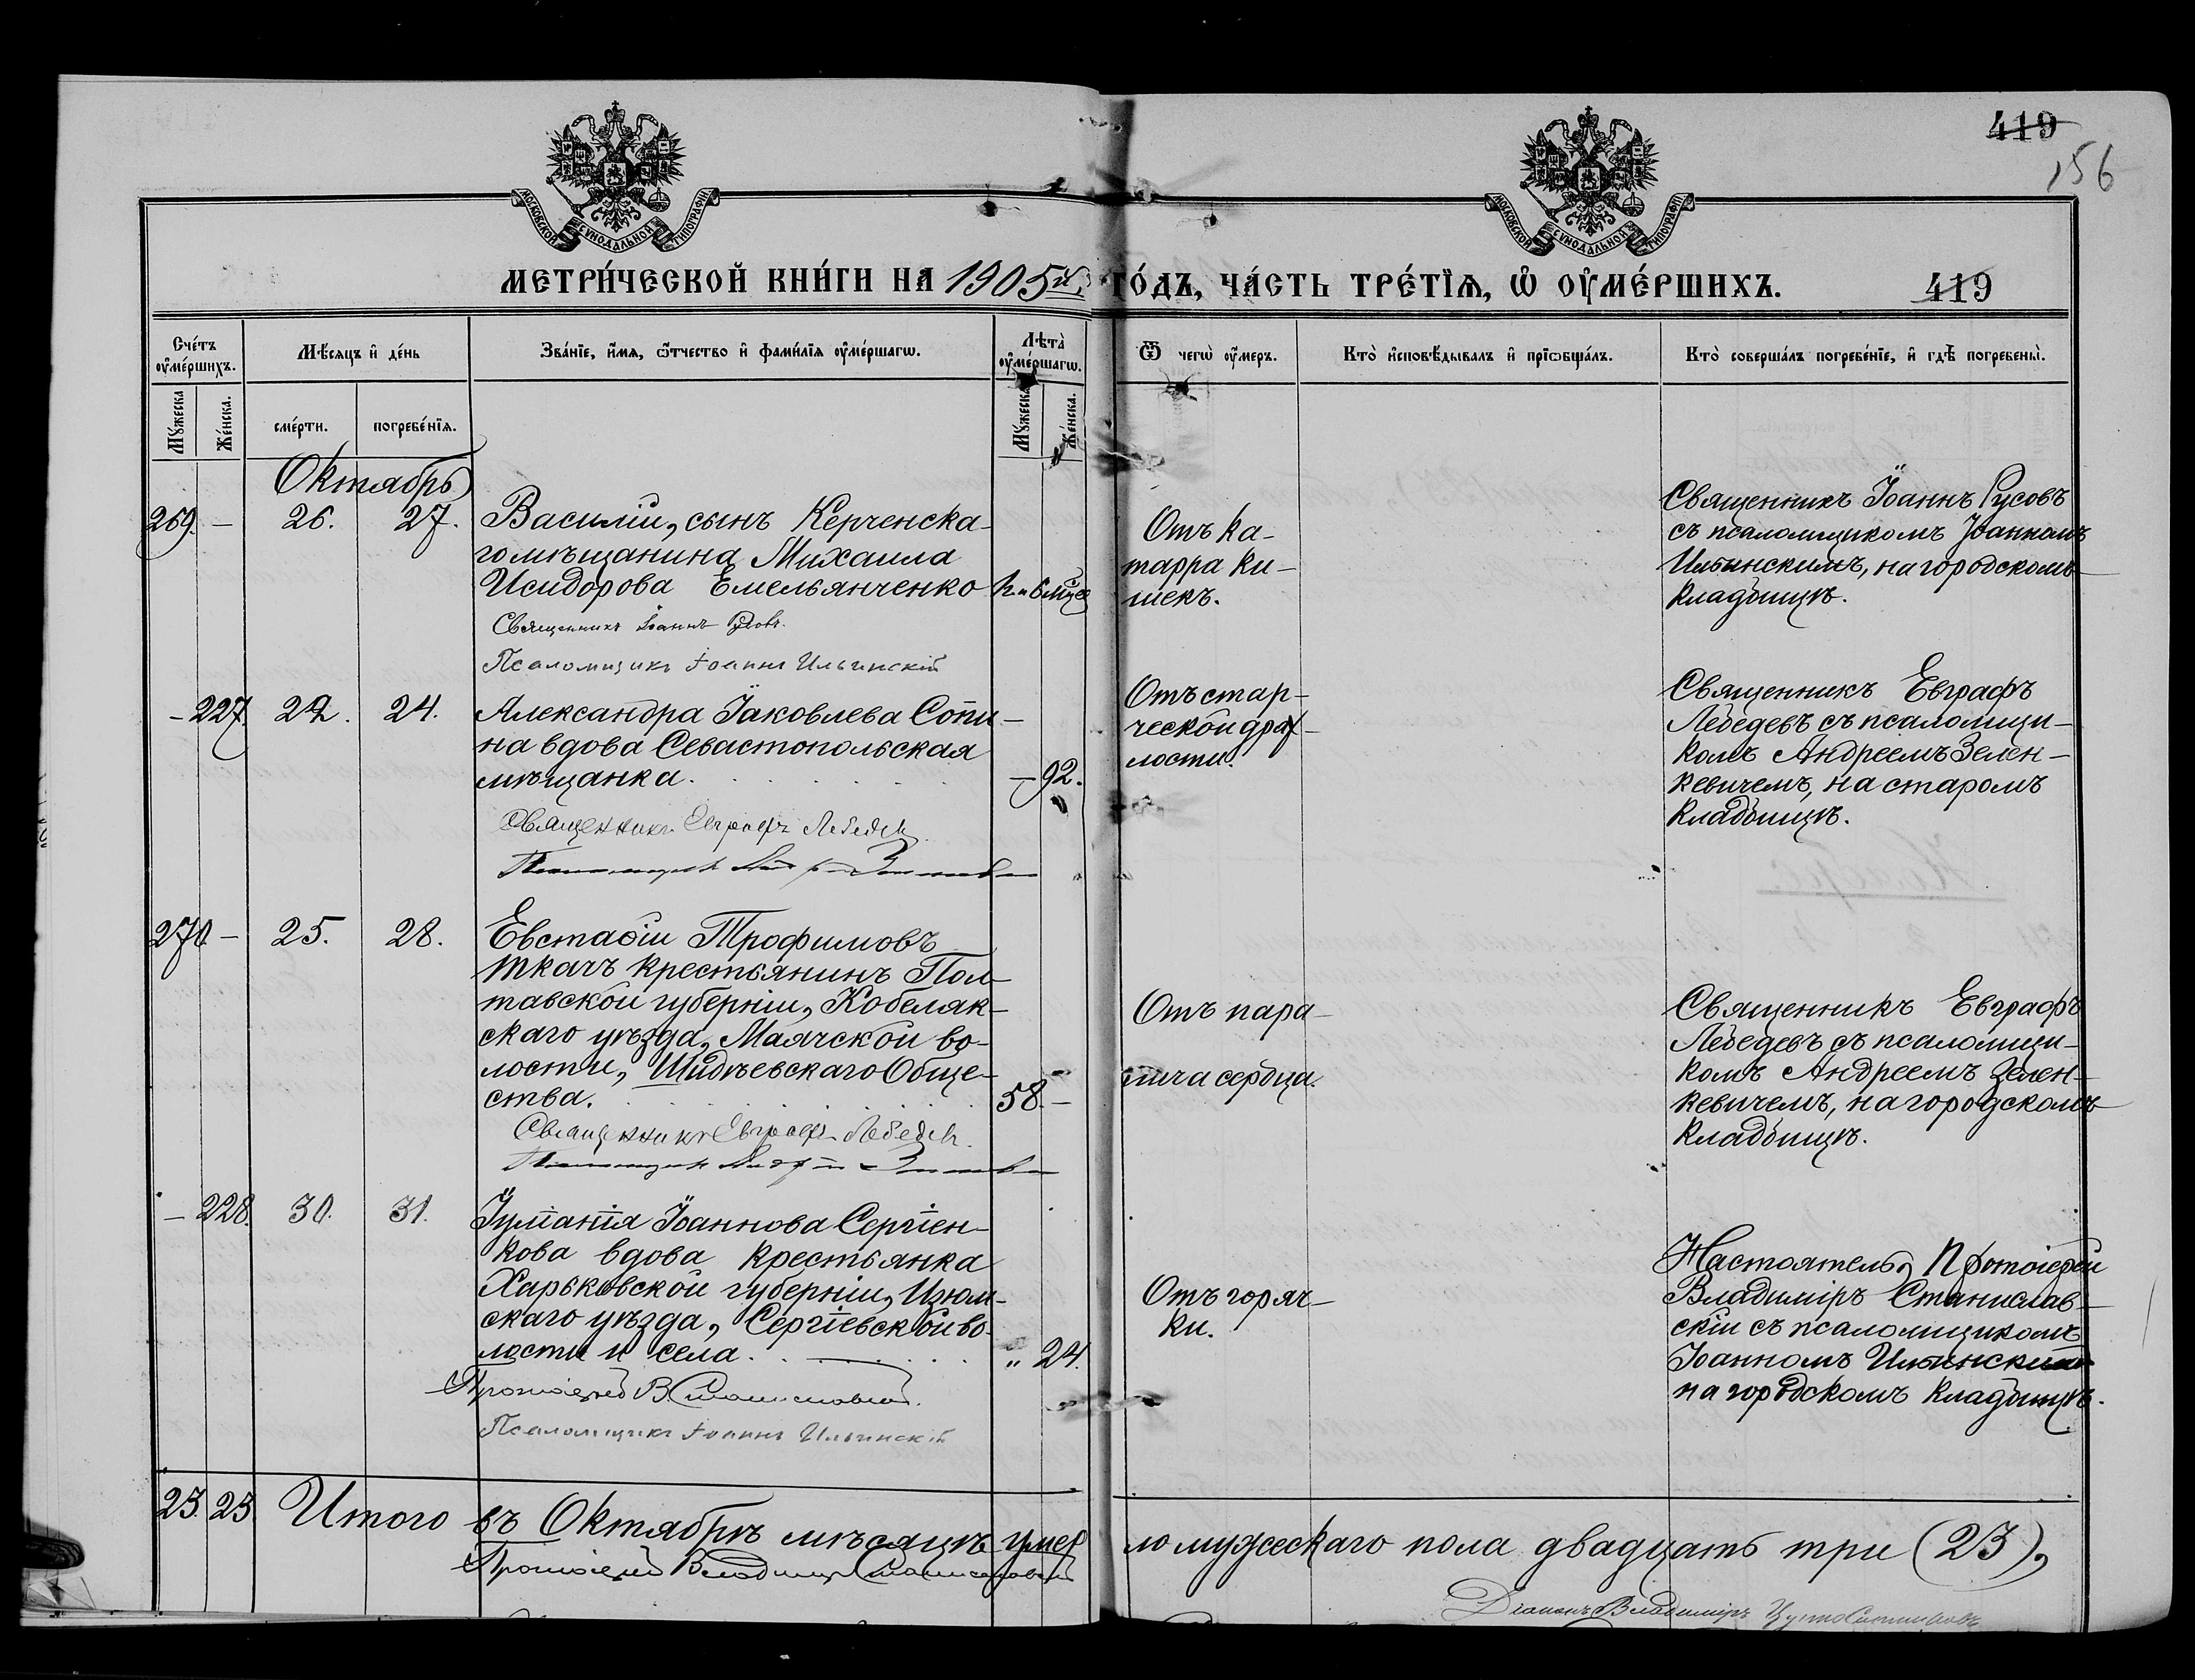 419
156
МОСКОВСКОЙ СУНОДАЛЬНОЙ ТИПОГРАФІИ
МОСКОВСКОЙ СУНОДАЛЬНОЙ ТИПОГРАФІИ
МЕТРИ́ЧЕСКОЙ КНИ́ГИ НА 1905й ГО́ДЪ, ЧА́СТЬ ТРЕ́ТІѦ, Ѡ҆ ОУ҆МЕ́РШИХЪ.
419
Сче́тъ оу҆ме́ршихъ.
Мѣ́сяцъ и҆ де́нь
Зва́нїе, и҆́мя, ѻ҆́тчество и҆ фами́лїя оу҆ме́ршагѡ.
Лѣ́та оу҆ме́ршагѡ.
Ѿ чегѡ̀ оу҆́меръ.
Кто̀ и҆сповѣ́дывалъ и҆ прїѡбща́лъ.
Кто̀ соверша́лъ погребе́нїе, и҆ гдѣ̀ погребены̀.
Му́жеска
Же́нска.
сме́рти.
погребе́нїя.
Му́жеска
Же́нска.
Октябрь
269. — 26. 27.
Василій, сынъ Керченска-
го мѣщанина Михаила
Исидорова Емельянченко
Священникъ Іоаннъ Русовъ.
Псаломщикъ Іоаннъ Ильинскій
Отъ ка-
тарра ки-
шекъ.
Священникъ Іоаннъ Русовъ
съ псаломщикомъ Іоанномъ
Ильинскимъ, на городскомъ
кладбищѣ.
— 227. 22. 24.
Александра Іаковлева Сопи-
на вдова Севастопольская
мѣщанка.
— 92.
Священникъ Евграфъ Лебедевъ
Отъ стар-
ческой дрях-
лости.
Священникъ Евграфъ
Лебедевъ съ псаломщи-
комъ Андреемъ Зелен-
кевичемъ, на старомъ
кладбищѣ.
270. — 25. 28.
Евстафій Трофимовъ
Ткачъ крестьянинъ Пол-
тавской губерніи, Кобеляк-
скаго уѣзда, Маячской во-
лости, Шидѣевскаго Обще-
ства.
58. —
Священникъ Евграфъ Лебедевъ.
Отъ пара-
лича сердца.
Священникъ Евграфъ
Лебедевъ съ псаломщи-
комъ Андреемъ Зелен-
кевичемъ, на городскомъ
кладбищѣ.
— 228. 30. 31.
Іуліанія Іоаннова Сергіен-
кова вдова крестьянка
Харьковской губерніи, Изюм-
скаго уѣзда, Сергіевской во-
лости и села.
„ 24.
Протоіерей В. Станиславскій.
Псаломщикъ Іоаннъ Ильинскій
Отъ горяч-
ки.
Настоятель, Протоіерей
Владиміръ Станислав-
скій съ псаломщикомъ
Іоанномъ Ильинскимъ
на городскомъ кладбищѣ.
23. 23. Итого въ Октябрѣ мѣсяцѣ умер
ло мужескаго пола двадцать три (23),
Протоіерей Владиміръ Станиславскій
Діаконъ Владиміръ